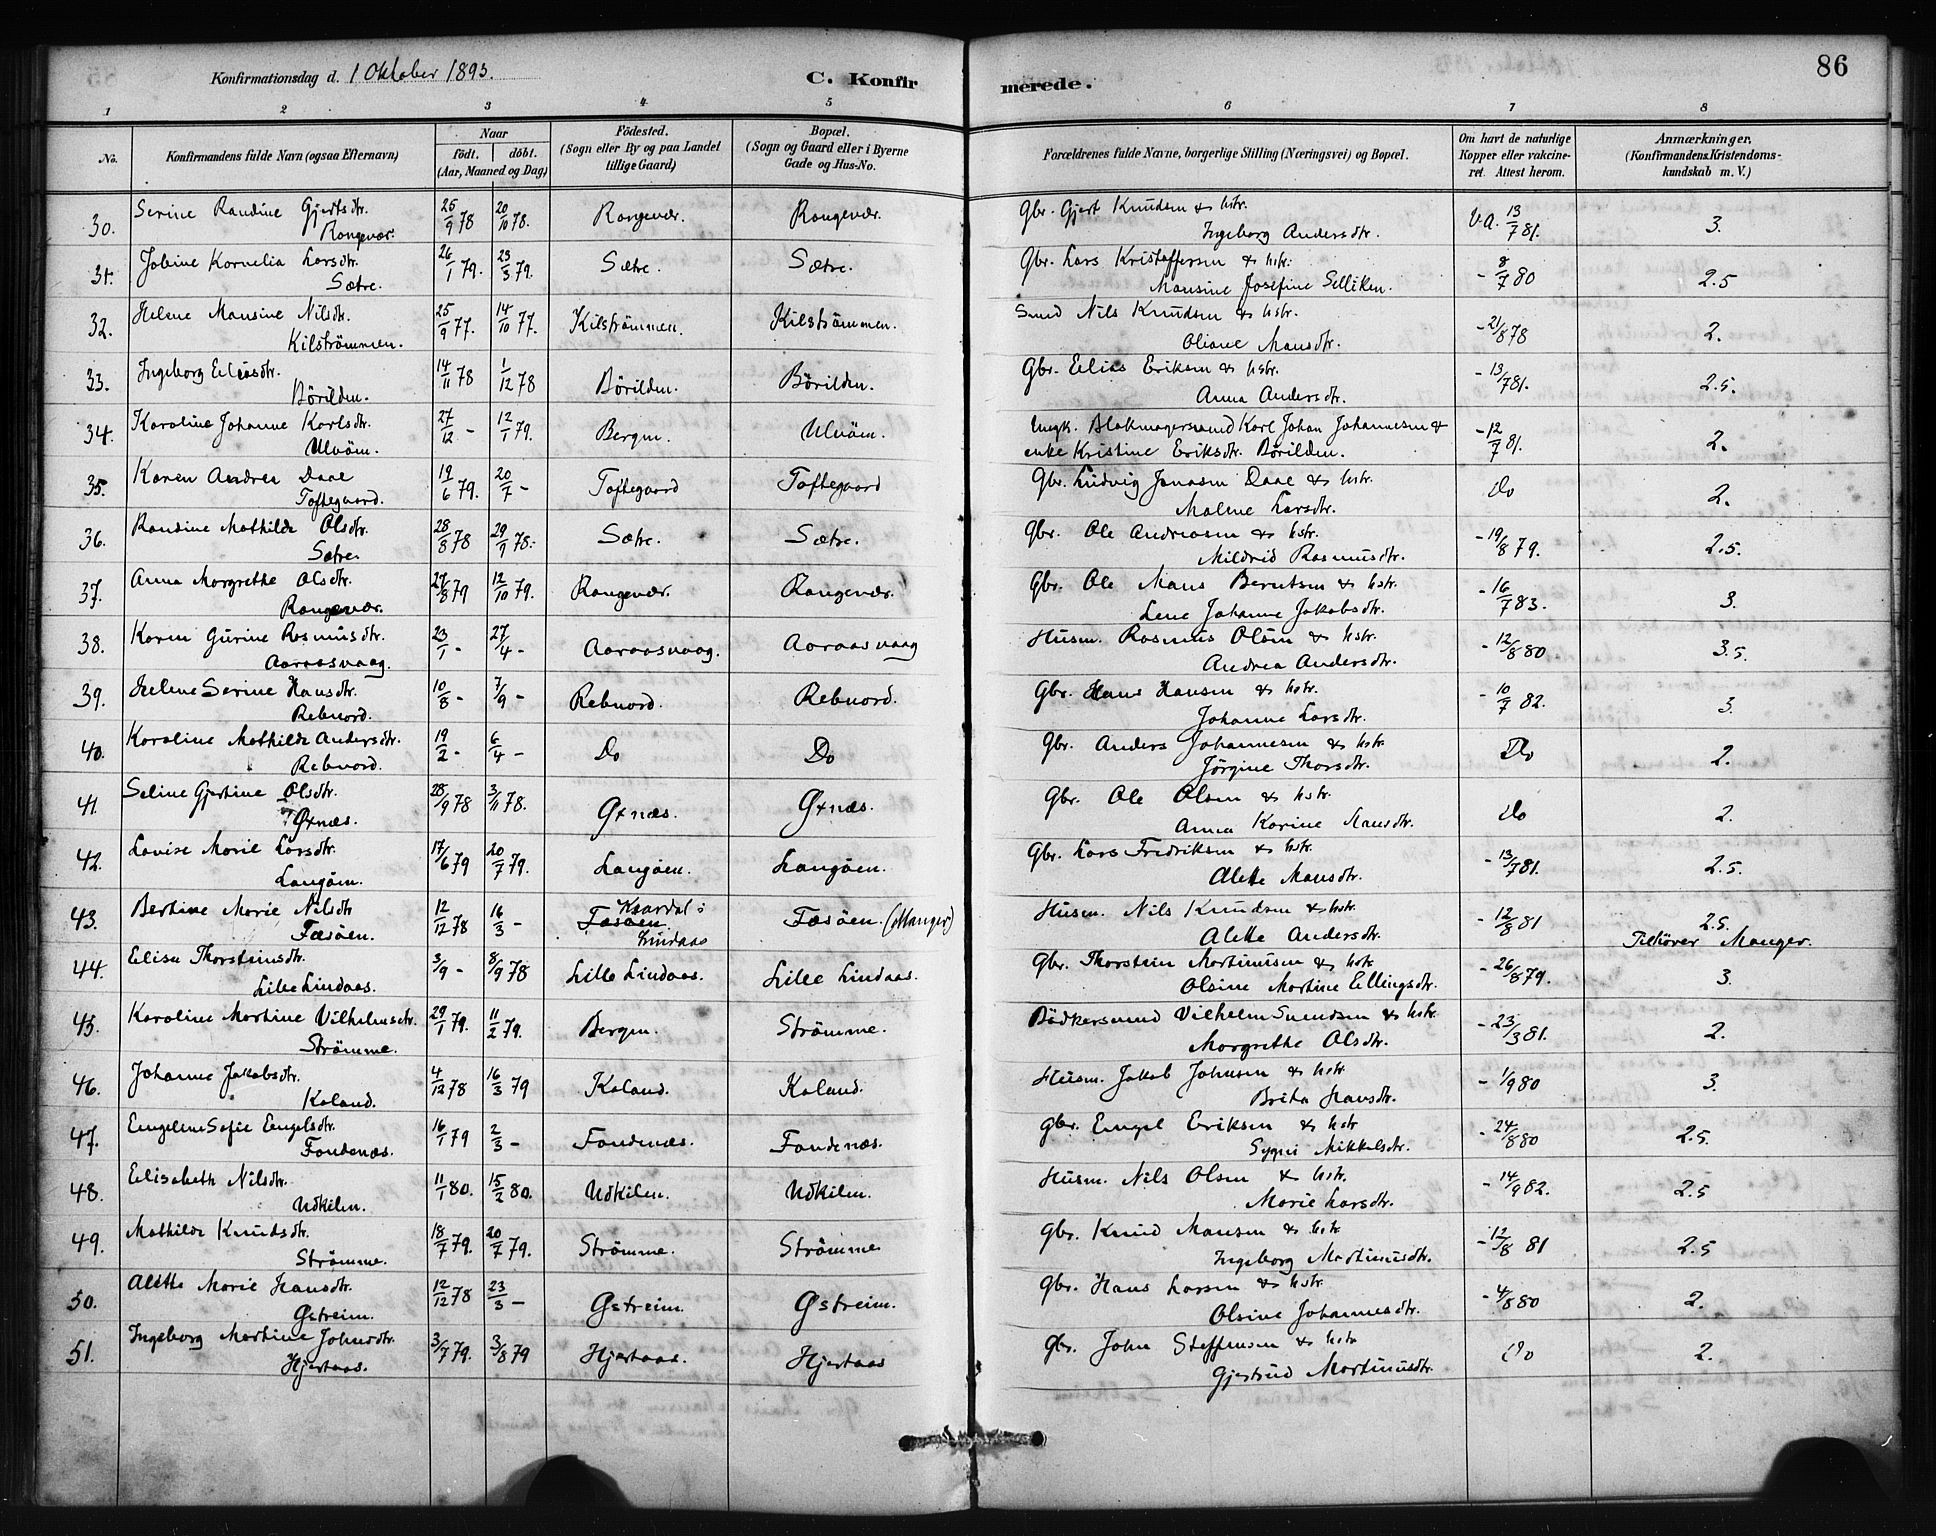 86
Konfirmationsdag d. 1 Oktober 1893.
C. Konfirmerede.
1 2 3 4 5 6 7 8
No.
Konfirmandens fulde Navn (ogsaa Efternavn)
Naar
født. døbt.
(Aar, Maaned og Dag)
Födested.
(Sogn eller By og paa Landet
tillige Gaard)
Bopæl.
(Sogn og Gaard eller i Byerne
Gade og Hus-No.
Forældrenes fulde Navne, borgerlige Stilling (Næringsvei) og Bopæl.
Om havt de naturlige
Kopper eller vakcine-
ret. Attest herom.
Anmærkninger.
(Konfirmandens Kristendoms-
kundskab m. V.)
30. Serine Randine Gjertsdtr. 25/9 78 20/10 78. Rongevær. Rongevær. Gbr. Gjert Knudsen & hstr. Va. 13/7 81. 3.
Rongevær. Ingeborg Andersdtr.
31. Jobine Kornelia Larsdtr. 26/1 79. 23/3 79. Sætre. Sætre. Gbr. Lars Kristoffersen & hstr. - 8/7 80 2.5
Sætre. Mansine Josefine Selliken.
32. Helene Mansine Nilsdtr. 25/9 77. 14/10 77. Kilströmmen. Kilströmmen. Smed Nils Knudsen & hstr. - 21/8 78 2.
Kilströmmen. Oliane Mansdtr.
33. Ingeborg Eliasdtr. 14/11 78 1/12 78 Börilden. Börilden. Gbr. Elias Eriksen & hstr. - 13/7 81. 2.5.
Börilden. Anna Andersdtr.
34. Karoline Johanne Karlsdtr. 27/12 - 12/1 79. Bergen. Ulvöen. Ungk. Blokmagersvend Karl Johan Johannesen & - 12/7 81. 2.
Ulvöen. enke Kristine Eriksdtr. Börilden.
35. Karen Andrea Daae 19/6 79. 20/7 - Toftegaard Toftegaard Gbr. Ludvig Jonasen Daae & hstr. Do 2.
Toftegaard. Malene Larsdtr.
36. Randine Mathilde Olsdtr. 28/8 78 29/9 78. Sætre. Sætre. Gbr. Ole Andreasen & hstr. - 19/8 79. 2.5.
Sætre. Mildrid Rasmusdtr.
37. Anna Margrethe Olsdtr. 27/8 79 12/10 79. Rongevær. Rongevær. Gbr. Ole Mans Berntsen & hstr. - 16/7 83. 3.
Rongevær. Lene Johanne Jakobsdtr.
38. Karen Gurine Rasmusdtr. 23/1 - 27/4 - Aaraasvaag. Aaraasvaag Husm. Rasmus Olsen & hstr. - 12/8 80. 3.5.
Aaraasvaag. Andrea Andersdtr.
39. Helene Serine Hansdtr. 10/8 - 7/9 - Rebnord. Rebnord. Gbr. Hans Hansen & hstr. - 10/7 82. 3.
Rebnord. Johanne Larsdtr.
40. Karoline Mathilde Andersdtr. 19/2 - 6/4 - Do Do Gbr. Anders Johannesen & hstr Do 2.
Rebnord. Jörgine Thorsdtr.
41. Seline Gjertine Olsdtr. 28/9 78 3/11 78. Øxnæs. Øxnæs. Gbr. Ole Olsen & hstr. Do 2.
Øxnæs. Anna Karine Mansdtr.
42. Lovise Marie Larsdtr. 17/6 79 20/7 79. Langöen. Langöen. Gbr. Lars Fredriksen & hstr. - 13/7 81. 2.5.
Langöen. Alette Mansdtr.
43. Bertine Marie Nilsdtr 12/12 78 16/3 - Kvardal i Fæsöen. (Manger) Husm. Nils Knudsen & hstr. - 12/8 81 2.5.
Fæsöen. Fæsöen. Lindaas Alette Andersdtr. Tilhører Manger.
44. Elise Thorsteinsdtr. 3/9 - 8/9 78 Lille Lindaas. Lille Lindaas. Gbr. Thorstein Martinusen & hstr - 26/8 79. 3.
Lille Lindaas. Olsine Martine Ellingsdtr.
45. Karoline Martine Vilhelmsdtr. 29/1 79. 11/2 79. Bergen. Strömme. Bödkersvend Vilhelm Svendsen & hstr. - 23/3 81. 2.
Strömme. Margrethe Olsdtr.
46. Johanne Jakobsdtr. 4/12 78 16/3 79 Kaland. Kaland. Husm. Jakob Johnsen & hstr - 1/9 80 3.
Kaland. Brita Hansdtr.
47. Engeline Sofie Engelsdtr. 16/1 79 2/3 - Fondenæs. Fondenæs. Gbr. Engel Eriksen & hstr - 24/8 80 2.5.
Fondenæs. Sygni Mikkelsdtr.
48. Elisabeth Nilsdtr. 11/1 80. 15/2 80. Udkilen. Udkilen. Husm. Nils Olsen & hstr. - 14/9 82. 2.5
Udkilen. Marie Larsdtr.
49. Mathilde Knudsdtr. 18/7 79. 20/7 79. Strömme. Strömme Gbr. Knud Mansen & hstr - 12/8 81 2.5
Strömme. Ingeborg Martinusdtr.
50. Alette Marie Hansdtr. 12/12 78 23/3 - Østreim. Østreim. Gbr. Hans Larsen & hstr. - 4/8 80 2.
Østreim. Olsine Johannesdtr.
51. Ingeborg Martine Johnsdtr. 3/7 79. 3/8 79 Hjertaas. Hjertaas Gbr. John Steffensen & hstr Do 2.
Hjertaas. Gjertrud Martinusdtr.